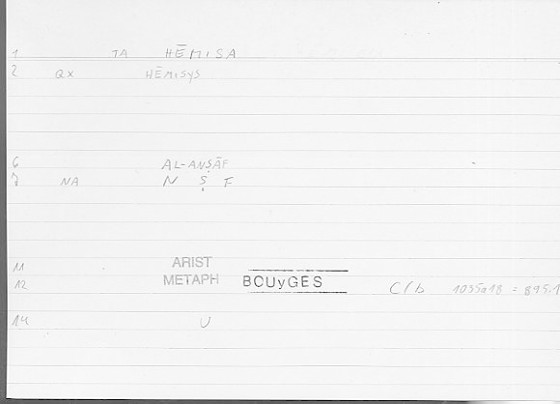 1 TA HĒMISA
2 QX HĒMISYS
6 AL-ANṢĀF
7 NA N Ṣ F
11 ARIST
12 METAPH BOUyGES C/b 1035a18 = 895.1
14 U